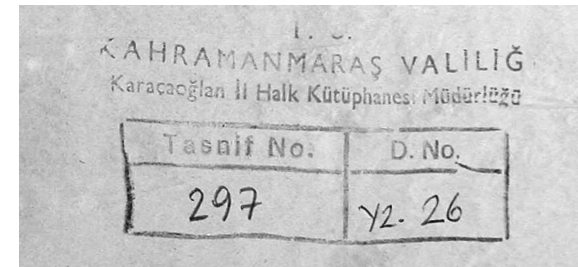 T. C.
KAHRAMANMARAŞ VALİLİĞ
Karacaoğlan İl Halk Kütüphanesi Müdürlüğü
Tasnif No. D. No.
297 Yz. 26